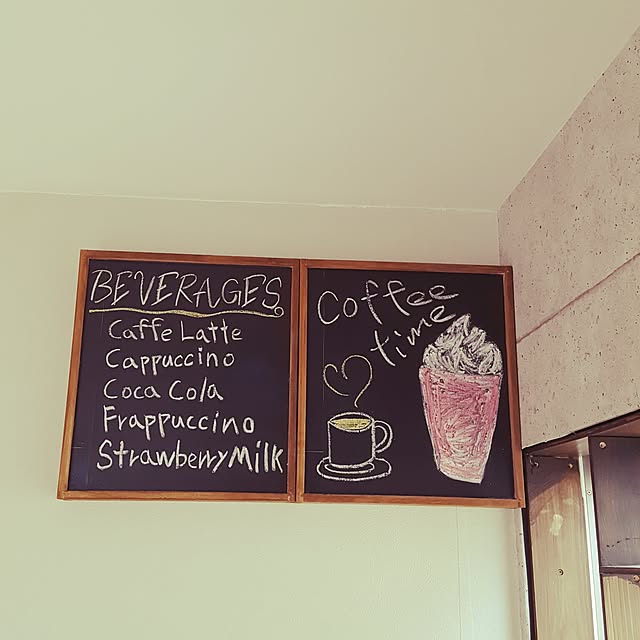 BEVERAGES
Caffe Latte
Cappuccino
Coca Cola
Frappuccino
Strawberry Milk
Coffee
time